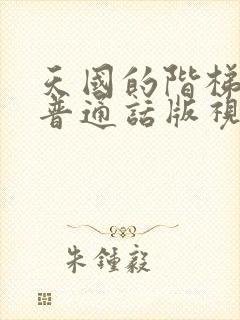 天國的階梯
普通話版視
朱鍾毅